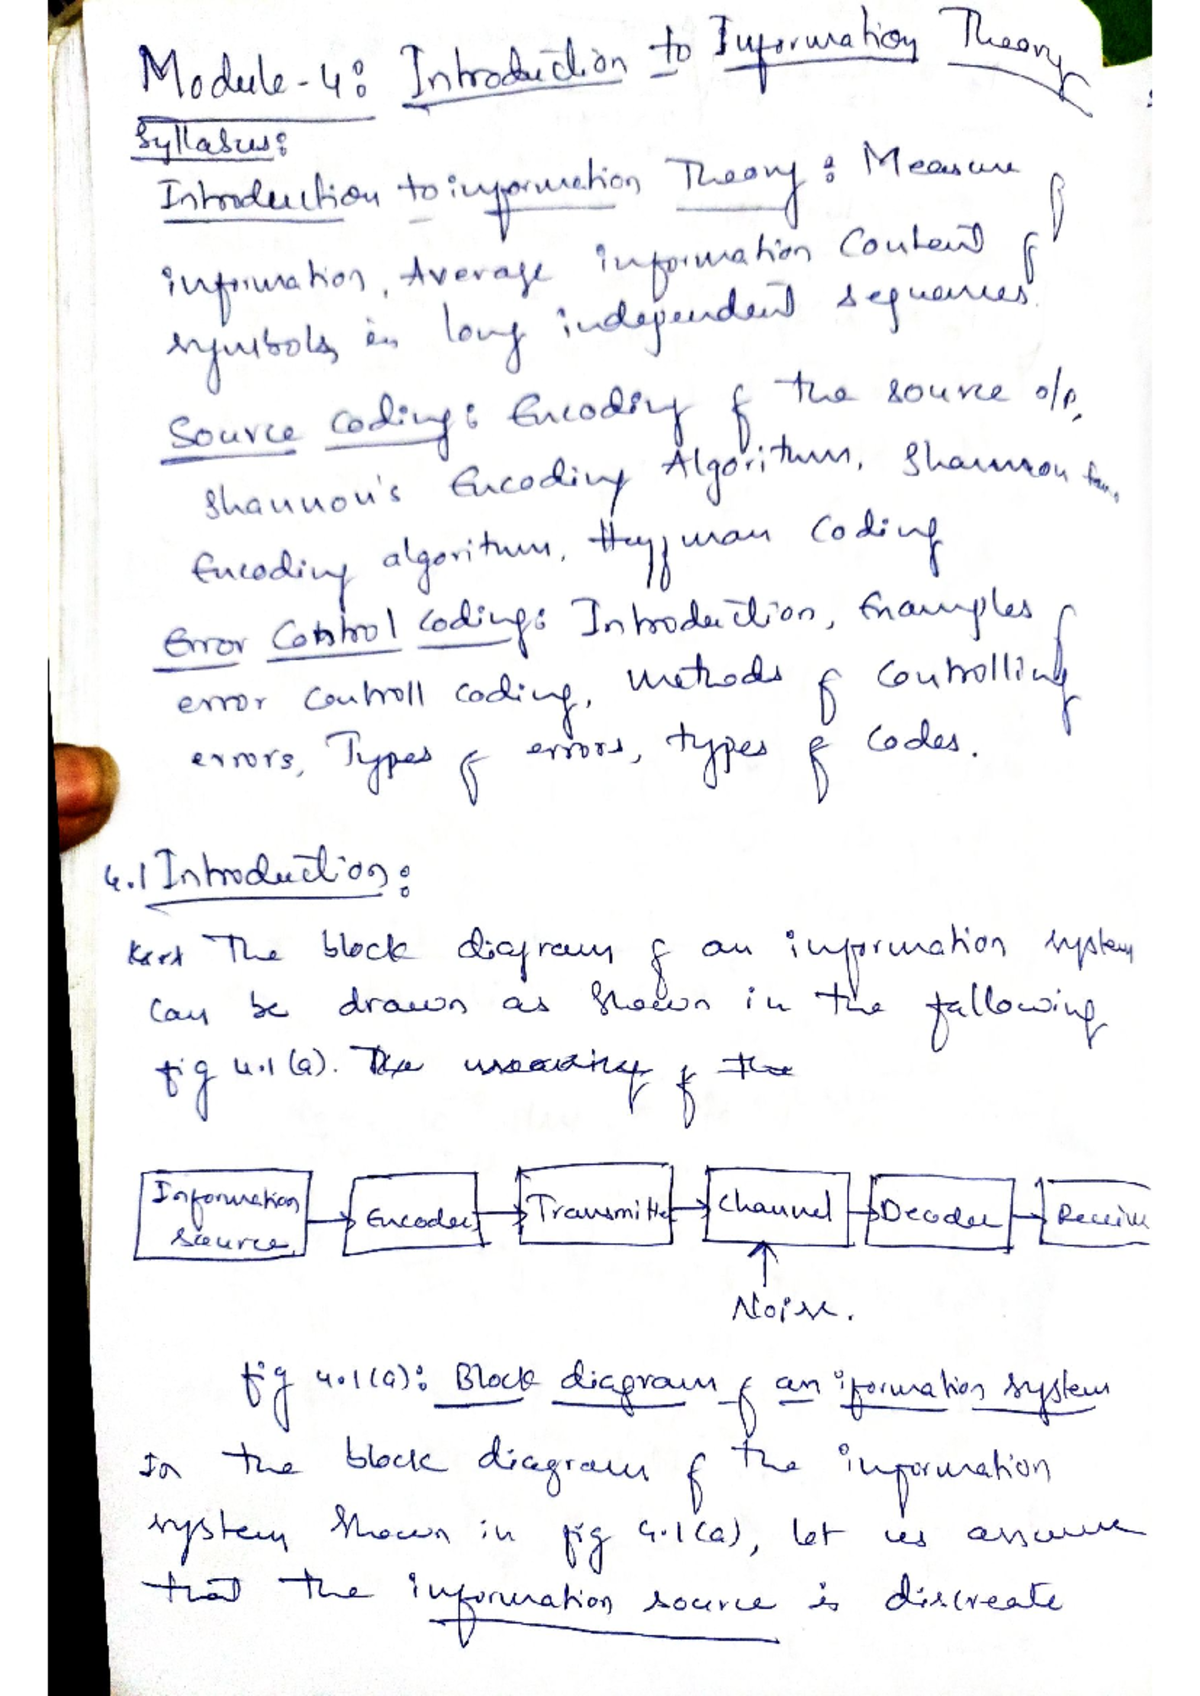 Module-4: Introduction to Information Theory
Syllabus:
Introduction to information Theory: Measure of
information, Average information Content of
symbols in long independent sequences.
Source Coding: Encoding of the source o/p,
Shannon's Encoding Algorithm, Shannon
Encoding algorithm, Huffman Coding
Error Control Coding: Introduction, Examples of
error Controll coding, methods of Controlling
errors, Types of errors, types of Codes.
4.1 Introduction:
The block diagram of an information system
Can be drawn as Shown in the following
fig 4.1(a). The meaning of the
Information Source
Encoder
Transmitter
Channel
Decoder
Noise.
fig 4.1(a): Block diagram of an iformation system
In the block diagram of the information
system Shown in fig 4.1(a), let us assume
that the information source is discreate